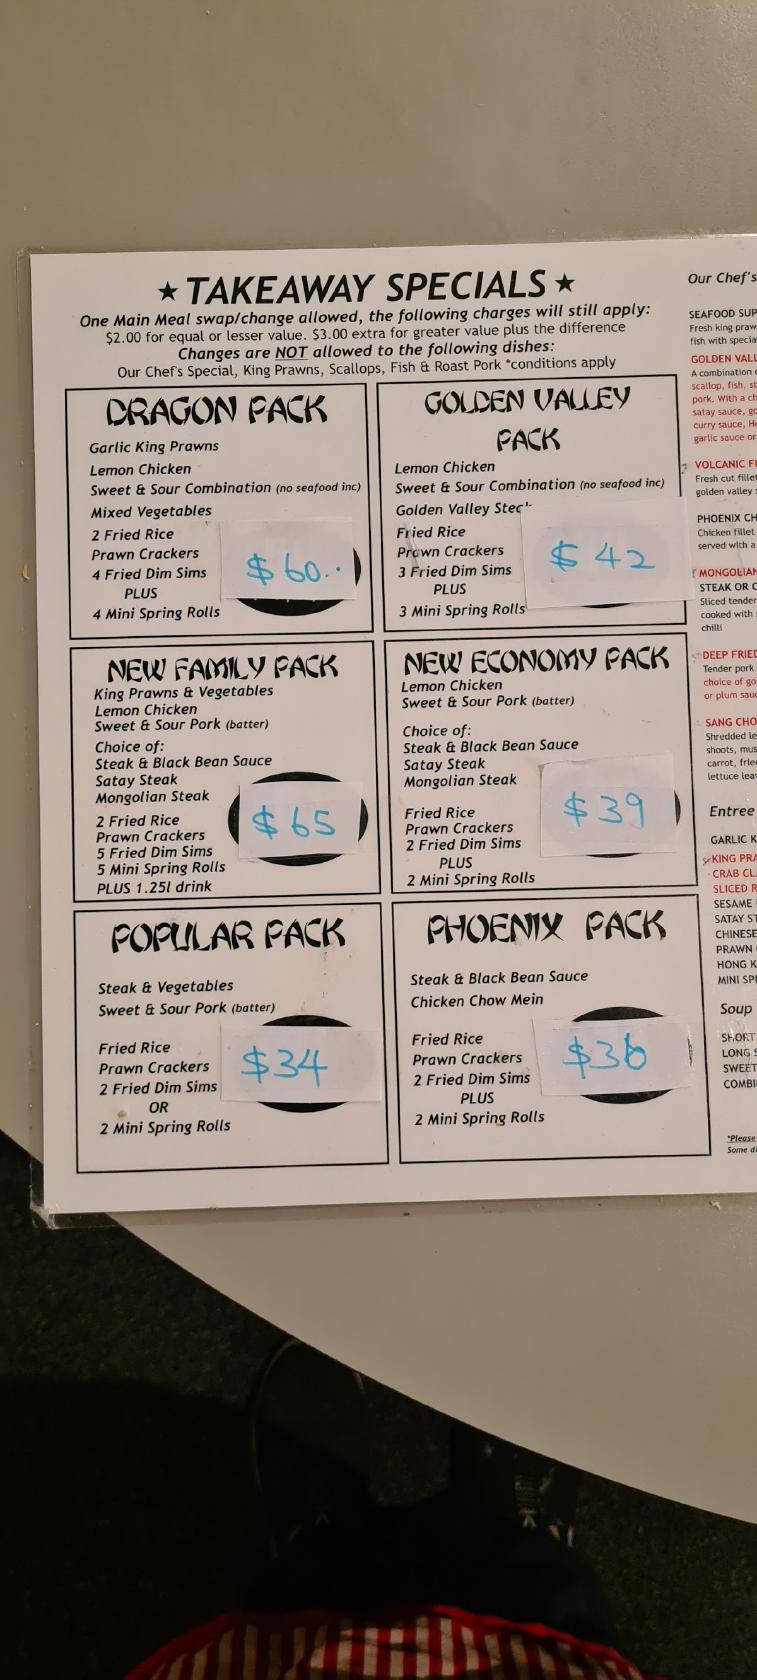 ★ TAKEAWAY SPECIALS ★
One Main Meal swap/change allowed, the following charges will still apply:
$2.00 for equal or lesser value. $3.00 extra for greater value plus the difference
Changes are NOT allowed to the following dishes:
Our Chef's Special, King Prawns, Scallops, Fish & Roast Pork *conditions apply
DRAGON PACK
Garlic King Prawns
Lemon Chicken
Sweet & Sour Combination (no seafood inc)
Mixed Vegetables
2 Fried Rice
Prawn Crackers
4 Fried Dim Sims
PLUS
4 Mini Spring Rolls
$60..
GOLDEN VALLEY
PACK
Lemon Chicken
Sweet & Sour Combination (no seafood inc)
Golden Valley
Fried Rice
Prawn Crackers
3 Fried Dim Sims
PLUS
3 Mini Spring Rolls
$42
NEW FAMILY PACK
King Prawns & Vegetables
Lemon Chicken
Sweet & Sour Pork (batter)
Choice of:
Steak & Black Bean Sauce
Satay Steak
Mongolian Steak
2 Fried Rice
Prawn Crackers
5 Fried Dim Sims
5 Mini Spring Rolls
PLUS 1.25l drink
$65
NEW ECONOMY PACK
Lemon Chicken
Sweet & Sour Pork (batter)
Choice of:
Steak & Black Bean Sauce
Satay Steak
Mongolian Steak
Fried Rice
Prawn Crackers
2 Fried Dim Sims
PLUS
2 Mini Spring Rolls
$39
POPULAR PACK
Steak & Vegetables
Sweet & Sour Pork (batter)
Fried Rice
Prawn Crackers
2 Fried Dim Sims
OR
2 Mini Spring Rolls
$34
PHOENIX PACK
Steak & Black Bean Sauce
Chicken Chow Mein
Fried Rice
Prawn Crackers
2 Fried Dim Sims
PLUS
2 Mini Spring Rolls
$36
Our Chef's
SEAFOOD SUP
Fresh king praw
fish with specia
GOLDEN VALL
A combination
scallop, fish, st
pork. With a ch
satay sauce, go
curry sauce, Ho
garlic sauce or
VOLCANIC FI
Fresh cut fille
golden valley
PHOENIX CH
Chicken fillet
served with a
MONGOLIAN
STEAK OR C
Sliced tender
cooked with
chilli
DEEP FRIED
Tender pork
choice of go
or plum sau
SANG CHO
Shredded le
shoots, mus
carrot, frie
lettuce lea
Entree
GARLIC K
KING PRA
CRAB CL
SLICED R
SESAME
SATAY ST
CHINESE
PRAWN
HONG K
MINI SP
Soup
SHORT
LONG S
SWEET
COMBI
*Please
Some di